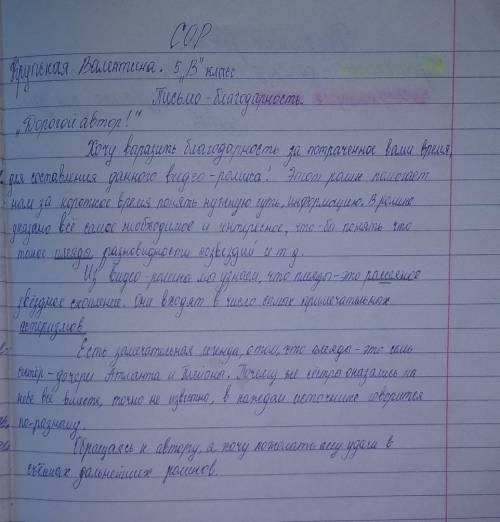 СОР
Крупская Валентина. 5 "В" класс
Письмо-благодарность.
"Дорогой автор!"
Хочу выразить благодарность за потраченное вами время,
для составления данного видео-ролика! Этот ролик помогает
нам за короткое время понять нужную суть, информацию. В ролике
указано всё самое необходимое и интересное, что-бы понять что
такое плеяды, разновидности созвездий и т.д.
Из видео-ролика мы узнаем, что плеяды-это рассеяное
звёздное скопление. Они входят в число самых примечательных
астеризмов.
Есть замечательная легенда, о том, что плеяды-это семь
сестёр-дочери Атланта и Плейоны. Почему же сёстры оказались на
небе все вместе, точно не известно, в каждом источнике говорится
по-разному.
Обращаясь к автору, я хочу пожелать ему удачи в
съёмках дальнейших роликов.